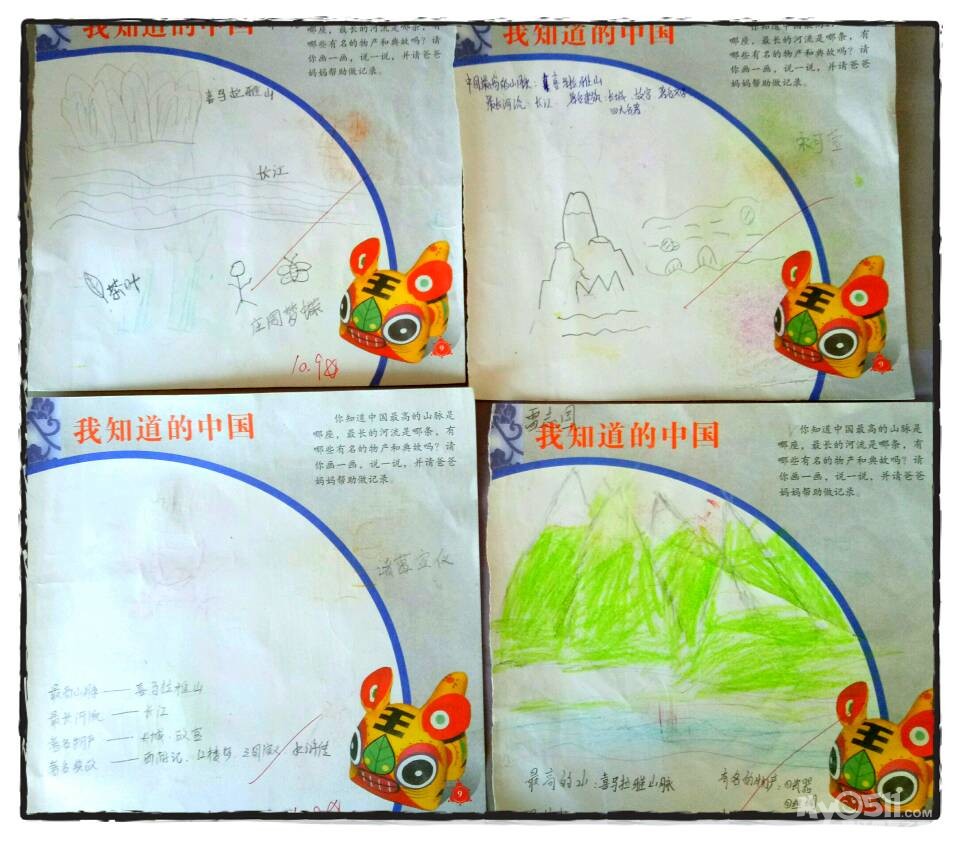 我知道的中国
哪座，最长的河流是哪条，有
哪些有名的物产和典故吗？请
你画一画，说一说，并请爸爸
妈妈帮助做记录。
喜马拉雅山
长江
茶叶
庄周梦蝶
10.9
王
9
我知道的中国
哪座，最长的河流是哪条，有
哪些有名的物产和典故吗？请
你画一画，说一说，并请爸爸
妈妈帮助做记录。
中国最高的山脉：喜马拉雅山
最长河流：长江 著名建筑：长城 故宫
王
9
我知道的中国
你知道中国最高的山脉是
哪座，最长的河流是哪条，有
哪些有名的物产和典故吗？请
你画一画，说一说，并请爸爸
妈妈帮助做记录。
诸葛宜仪
最高山脉——喜马拉雅山
最长河流——长江
著名物产——长城、故宫
著名典故——西游记、红楼梦、三国演义、水浒传
10.9
王
9
我知道的中国
你知道中国最高的山脉是
哪座，最长的河流是哪条，有
哪些有名的物产和典故吗？请
你画一画，说一说，并请爸爸
妈妈帮助做记录。
最高的山：喜马拉雅山脉
有名的物产：
王
My0511.COM